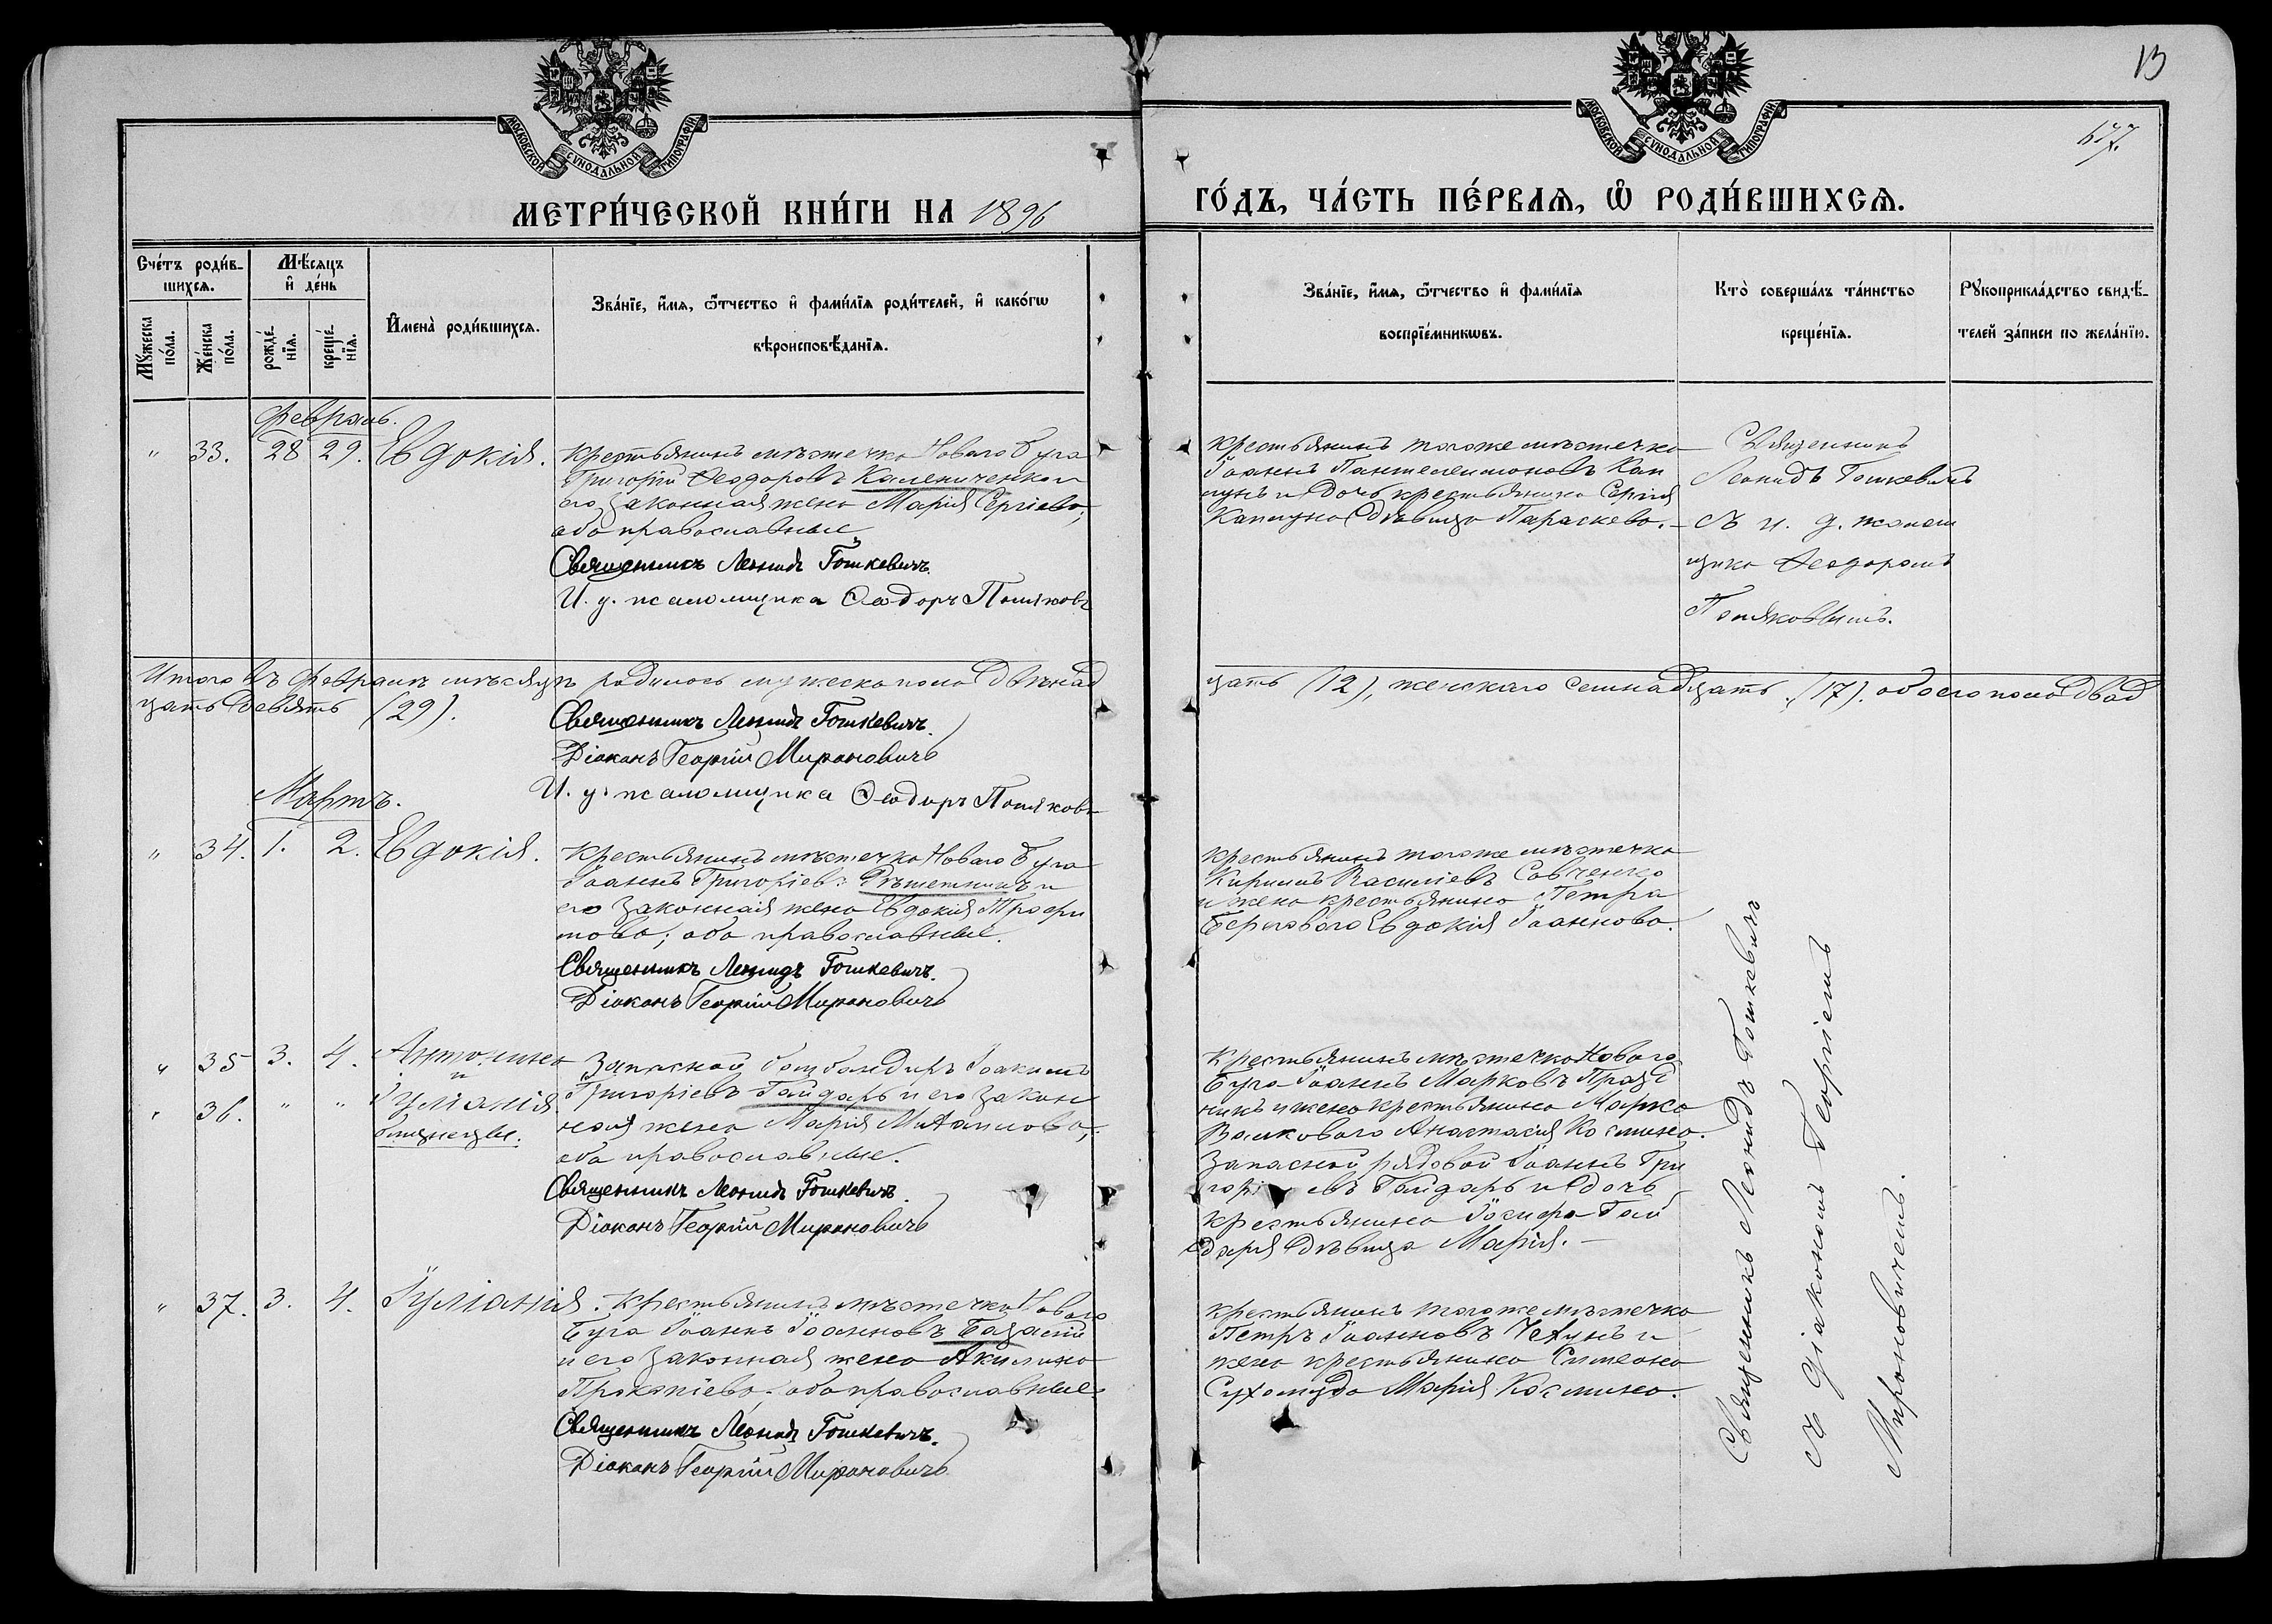 13
677.
МОСКОВСКОЙ СѴНОДАЛЬНОЙ ТИПОГРАФІИ
МОСКОВСКОЙ СѴНОДАЛЬНОЙ ТИПОГРАФІИ
МЕТРИ́ЧЕСКОЙ КНИ́ГИ НА 1896
ГО́ДЪ, ЧА́СТЬ ПЕ́РВАѦ, Ѡ҆ РОДИ́ВШИХСѦ.
Сче́тъ роди́в-
шихсѧ.
Мꙋ́жеска
по́ла.
Же́нска
по́ла.
Мѣ́сѧцъ
и҆ де́нь
рожде́-
нїѧ.
креще́-
нїѧ.
И҆мена̀ роди́вшихсѧ.
Зва́нїе, и҆́мѧ, ѻ҆́тчество и҆ фами́лїѧ роди́телей, и҆ како́гѡ
вѣроисповѣ́данїѧ.
Зва́нїе, и҆́мѧ, ѻ҆́тчество и҆ фами́лїѧ
воспрїе́мникѡвъ.
Кто̀ соверша́лъ та́инство
креще́нїѧ.
Рꙋкоприкла́дство свидѣ́-
телей за́писи по жела́нїю.
Февраль.
" 33. 28 29. Евдокія.
Крестьянинъ мѣстечка Новаго Буга
Григорій Ѳеодоровъ Калениченко и
его законная жена Марія Сергіева,
оба православные
Священникъ Леонидъ Гошкевичъ.
И. д. псаломщика Ѳеодоръ Поляковъ
Крестьянинъ тогоже мѣстечка
Іоаннъ Пантелеимоновъ Кап
цунъ и дочь крестьянина Сергія
Капцуна дѣвица Параскева. —
Священникъ
Леонидъ Гошкевичъ
съ и. д. псалом
щика Ѳеодоромъ
Поляковымъ.
Итого въ Февралѣ мѣсяцѣ родилось мужеска пола двѣнад
цать (12), женскаго семнадцать (17). обоего пола двад
цать девять (29).
Священникъ Леонидъ Гошкевичъ.
Діаконъ Георгій Мироновичъ
И. д. псаломщика Ѳеодоръ Поляковъ
Мартъ.
" 34. 1. 2. Евдокія.
Крестьянинъ мѣстечка Новаго Буга
Іоаннъ Григоріевъ Рѣшетникъ и
его законная жена Евдокія Трофи
мова; оба православные.
Священникъ Леонидъ Гошкевичъ.
Діаконъ Георгій Мироновичъ
Крестьянинъ тогоже мѣстечка
Кириллъ Василіевъ Савченко
и жена крестьянина Петра
Берегового Евдокія Іоаннова.
" 35 3. 4. Антонина
и
" 36. " " Іуліанія
близнецы.
Запасной бомбандиръ Іоакимъ
Григоріевъ Гайдарь и его закон
ная жена Марія Михаилова,
оба православные.
Священникъ Леонидъ Гошкевичъ.
Діаконъ Георгій Мироновичъ
Крестьянинъ мѣстечка Новаго
Буга Іоаннъ Марковъ Празд
никъ и жена крестьянина Марка
Волкового Анастасія Космина.
Запасной рядовой Іоаннъ Гри
горіевъ Гайдарь и дочь
крестьянина Іосифа Гай
даря дѣвица Марія. —
" 37. 3. 4. Іуліанія.
Крестьянинъ мѣстечка Новаго
Буга Іоаннъ Іоанновъ Базалій
и его законная жена Акилина
Прокопіева; оба православные.
Священникъ Леонидъ Гошкевичъ.
Діаконъ Георгій Мироновичъ
Крестьянинъ тогоже мѣстечка
Петръ Іоанновъ Чехунъ и
жена крестьянина Симеона
Сухомуда Марія Космина.
Священникъ Леонидъ Гошкевичъ
съ діакономъ Георгіемъ
Мироновичемъ.